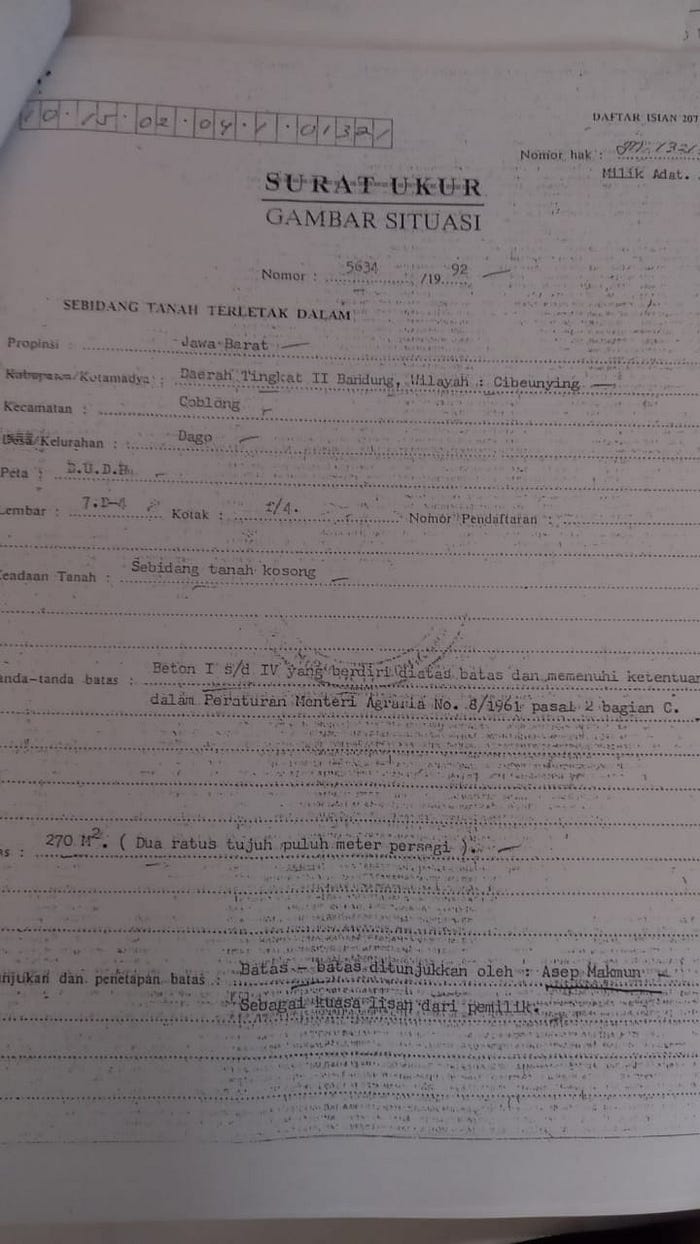 10.15.02.04.1.01321
DAFTAR ISIAN 207
Nomor hak : 1321
Milik Adat.
SURAT UKUR
GAMBAR SITUASI
Nomor : 5634 /19 92
SEBIDANG TANAH TERLETAK DALAM
Propinsi : Jawa Barat
Kabupaten/Kotamadya : Daerah Tingkat II Bandung, Wilayah : Cibeunying
Kecamatan : Coblong
Desa/Kelurahan : Dago
Peta :
Lembar : Kotak : Nomor Pendaftaran :
eadaan Tanah : Sebidang tanah kosong
anda-tanda batas : Beton I s/d IV yang berdiri diatas batas dan memenuhi ketentuan
dalam Peraturan Menteri Agraria No. 8/1961 pasal 2 bagian C.
as : 270 M2. ( Dua ratus tujuh puluh meter persegi ).
unjukan dan penetapan batas : Batas - batas ditunjukkan oleh : Asep Makmun
Sebagai kuasa lisan dari pemilik.